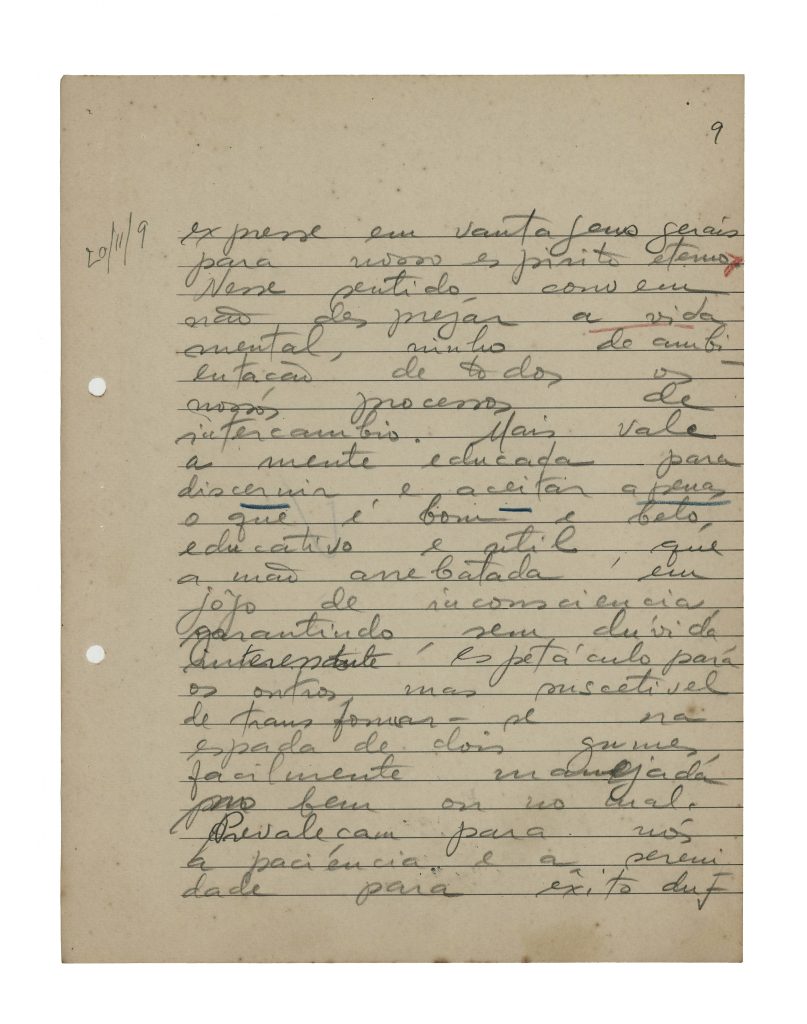 9
20/11/9
expresse em vantagens gerais
para nosso espirito eterno,
Nesse sentido convem
não desprezár a vida
mental, ninho de ambi
entacão de todos os
nossos processos de
intercambio. Mais vale
a mente educada para
discernir e aceitar apenas
o que é bom e belo,
educativo e util que
a mão arrebatada em
jôjo de inconsciencia,
garantindo sem duvida
interessante espetáculo para
os outros, mas suscetivel
de transformar-se na
espada de dois gumes
facilmente manejada
no bem ou no mal.
Prevalecam para nós
a paciência e a sereni
dade para êxito